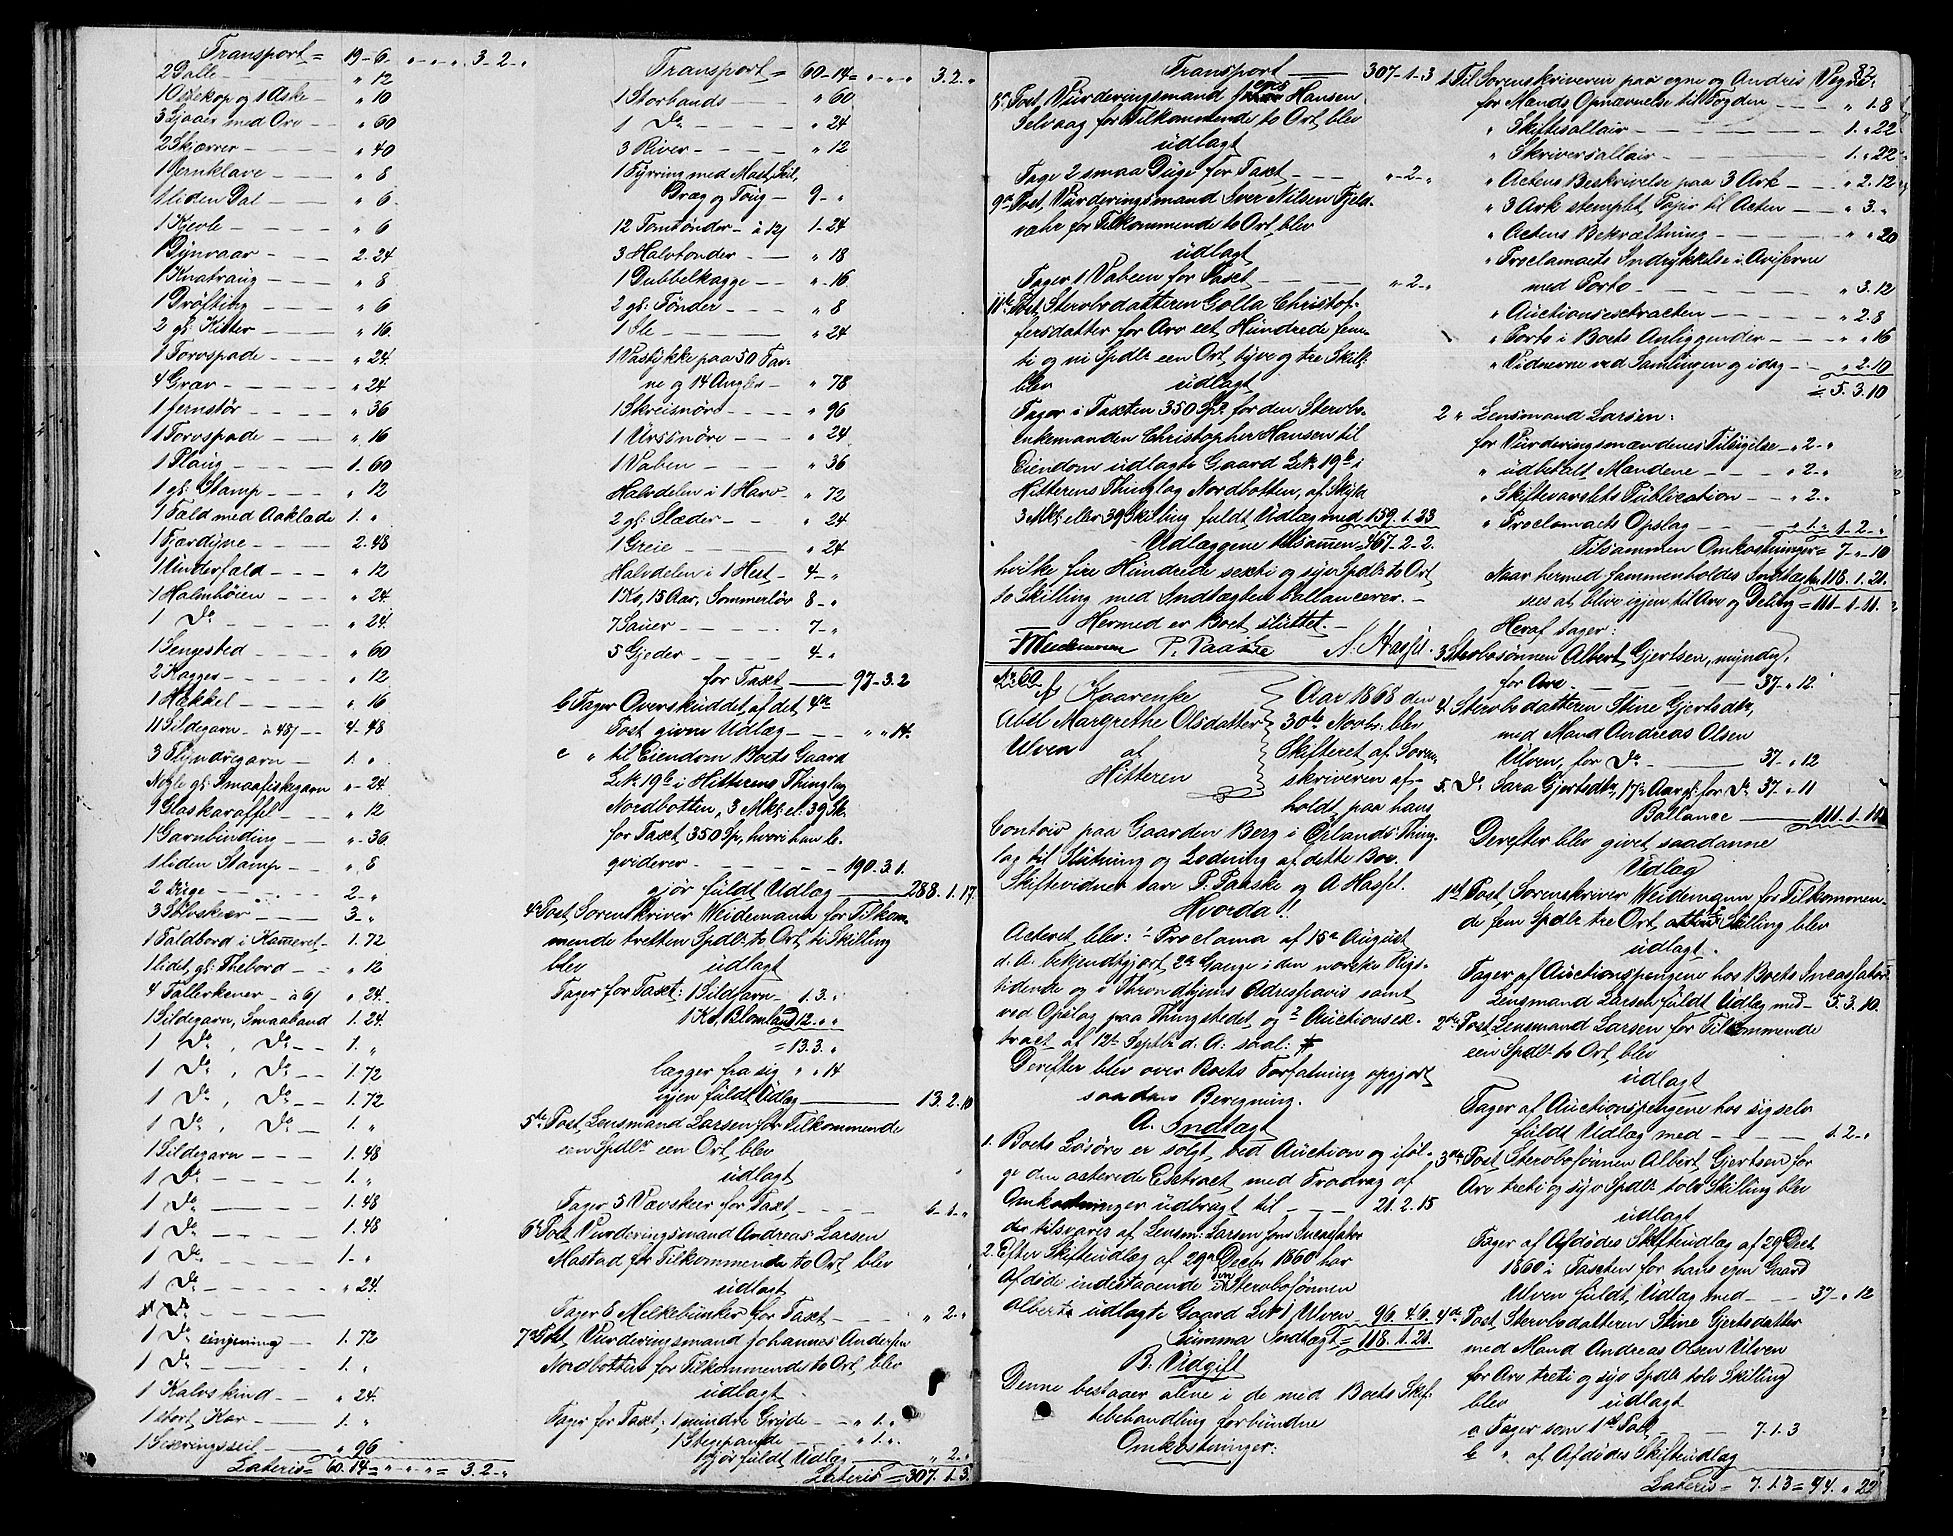 Transport = 19-6 „ „ „ 3-2-„
2 Balle „ 12
1 Ostekop og 1 Aske „ 10
3 Ljaaer med Orv „ 60
2 Skjærrer „ 40
1 Jernklave „ 8
1 liden Dal „ 6
1 Kjevle „ 6
1 Bynvaar 2-24
1 Knatraug „ 8
1 Drøfting „ 6
2 gl: Kister „ 16
1 Torvspade „ 24
4 Græv „ 24
1 Jernstør „ 36
1 Torvspade „ 16
1 Ploug 1-60
1 gl: Stamp „ 12
1 Fald med Aaklæde 1. „
1 Fjærdyne 2-48
1 Underfald „ 12
1 Halmbøien „ 24
1 Do „ 24
1 Sengested „ 60
2 Kagger „ 12
1 Hækkel „ 16
11 Sildegarn à 48/ 4-48
3 Flyndregarn 1. „
Nogle gl: Smaafiskegarn „ 24
1 Glaskaraffel „ 12
1 Garnbinding „ 36
1 liden Stamp „ 8
2 Duge 2-„
3 Sølvskeer 3-„
1 Faldbord i Kammeret 1.72
1 lidet gl: Thebord „ 12
4 Tallerkener à 6/ „ 24
1 Sildegarn, Smaabund 1.24
1 Do, Do 1. „
1 Do, Do 1.72
1 Do, Do 1.72
1 Do, Do 1. „
1 Sildegarn 1.48
1 Do 1. „
1 Do 1.48
1 Do 1.48
1 Do 1-„
1 Do „ 24
1 Do
1 Do 1.72
1 Do 1. „
1 Kalvskind „ 24
1 stort Kar 1. „
1 Seseringsseil „ 96
Lateris = 60.14 = „ „ „ = 3.2-„
Transport = 60-14 = „ „ „ 3.2. „
1 Storbands „ 60
1 Do „ 24
3 River „ 12
1 Fyrring med Mast, Seil,
Dræg og Toug 9-„
12 Tomtønder à 12/ 1-24
3 Halvtønder „ 18
1 Dubbelkagge „ 16
2 gl: Tønder „ 8
1 Sle „ 24
1 Vastykke paa 50 Fav-
ne og 14 Angler „ 78
1 Skreisnøre „ 96
1 Ursnøre „ 24
1 Vaben „ 36
Halvdelen i 1 Harv „ 72
2 gl: Slæder „ 24
1 Greie „ 24
Halvdelen i 1 Hest 4-„
1 Ko, 15 Aar, Sommerløv 8-„
7 Sauer 7-„
5 Gjeder 4-„
for Taxt 97-3.2
b Tager Overskuddet af det 4de
Post given Udlæg „ „ 14.
c „ til Eiendom Boets Gaard
L.No 19b i Hitterens Thinglag
Nordbotten, 3 Mk el. 39 Sk.
for Taxt 350 Sp., hvori han le-
qviderer 190.3.1.
gjør fuldt Udlæg 288.1.17.
4de Post, Sorenskriver Weidemann for Tilkom-
mende tretten Spdlr to Ort ti Skilling
blev udlagt
Tager for Taxt: 1 Sildgarn 1.3. „
1 Ko, Blomland 12. „ „
= 13.3. „
lægger fra sig „ „ 14
igjen fuldt Udlæg 13.2.10
5te Post, Lensmand Larsen for Tilkommende
een Spdlr een Ort, blev
udlagt
Tager 5 Vævskeer for Taxt 1-1. „
6te Post Vurderingsmand Andreas Larsen
Mastad for Tilkommende to Ort, blev
udlagt
Tager 8 Melkebunker for Taxt „ 2-„
7de Post, Vurderingsmand Johannes Andersen
Nordbotten for Tilkommende to Ort, blev
udlagt
Tager for Taxt; 1 mindre Gryde „ 1. „
1 Stegepande „ 1. „
gjør fuldt Udlæg „ 2. „
Lateris = 307.1.3.
Transport 307-1.3
8de Post, Vurderingsmand Jens Hansen
Selvaag for Tilkommende to Ort, blev
udlagt
Tager 2 smaa Duge for Taxt „ -2-„
9de Post, Vurderingsmand Iver Nilsen Fjeld-
vær for Tilkommende to Ort, blev
udlagt
Tager 1 Vaben for Taxt „ 2-„
11te Post, Stervbodatteren Golla Christof-
fersdatter for Arv eet Hundrede fem-
ti og ni Spdlr een Ort, tyve og tre Skill.
blev udlagt
Tager i Taxten 350 Spd. for den Stervbo-
enkemanden Christopher Hansen til
Eiendom udlagte Gaard L.No 19b i
Hitterens Thinglag Nordbotten, af Skyld
3 Mk eller 39 Skilling fuldt Udlæg med 159.1.23
Udlæggene tilsammen = 467-2-2.
hvilke fire Hundrede sexti og syv Spdlr to Ort
to Skilling med Indtægten ballancerer.
Hermed er Boet sluttet.
Weidemann P. Paaske A. Hassel.
No 60. Aar 1868 den
Kaarenke 30te Novbr. blev
Abel Margrethe Olsdatter Skifteret af Soren-
Ulven skriveren af-
af holdt paa hans
Hitteren
Contoir paa Gaarden Berg i Ørlands Thing-
lag til Slutning og Lodning af dette Bo.
Skiftevidner vare P. Paaske og A Hassel.
Hvorda!!
Acteret blev: 1 Proclama af 15de August
d. A. bekjendtgjort 2de Gange i den norske Rigs-
tidende og i Throndhjems Adresseavis samt
ved Opslag paa Thingstedet og 2 Auctionsex-
tract af 12te Septbr d: A: saal: #
Derefter blev over Boets Forfatning opgjort
saadan Beregning.
A. Indtægt
1. Boets Løsøre er solgt ved Auction og iføl-
ge den acterede Extract med Fradrag af
Omkostninger udbragt til 21.2.15
der tilsvares af Lensm: Larsen som Incassator
2. Efter Skifteudlæg af 29de Decbr 1860 har
Afdøde indestaaende i den Stervbosønnen
Albert udlagte Gaard L.No 1 Ulven 96.4.6.
Summa Indtægt = 118.1.21.
B. Udgift
Denne bestaaer alene i de med Boets Skif-
tebehandling forbundne
Omkostninger:
82.
1. Til Sorenskriveren paa egne og Andres Vegne
for Mænds Opnævnelse til Fogden „ 1.8
„ Skiftesallair 1. „ 22
„ Skriversallair 1. „ 22
„ Actens Beskrivelse paa 3 Ark „ 2.12
„ 3 Ark stemplet Papir til Acten „ 3. „
„ Actens Bekræftning „ „ 20
„ Proclamaets Indrykkelse i Aviserne
med Porto „ 3.12
„ Auctionsextracten „ 2.8
„ Porto i Boets Anliggender „ „ 16
„ Vidnerne ved Samlingen og idag „ 2.10
= 5.3.10
2 „ Lensmand Larsen:
for Vurderingsmændenes Tilsigelse „ 2-„
„ udbetalt Mændene „ 2-„
„ Skiftevarslets Publication „ 2. „
„ Proclamaets Opslag „ 1. „ 1-2-„
Tilsammen Omkostninger = 7-„ 10
Naar hermed sammenholdes Indtægten 118.1.21.
sees at blive igjen til Arv og Deling = 111-1.11.
Heraf tager:
3. Stervbosønnen Albert Gjertsen, myndig,
for Arv 37-„ 12.
4. Stervbodatteren Stine Gjertsdtr,
med Mand Andreas Olsen
Ulven, for Do 37. „ 12
5. Do Sara Gjertsdtr, 17½ Aar gl. for Do 37. „ 11
Ballance 111.1.11
Derefter blev givet saadanne
Udlæg
1ste Post, Sorenskriver Weidemann for Tilkommen-
de fem Spdlr tre Ort ti Skilling blev
udlagt.
Tager af Auctionspengene hos Boets Incassator
Lensmand Larsen fuldt Udlæg med 5.3.10.
2den Post Lensmand Larsen for Tilkommende
een Spdlr to Ort, blev
udlagt
Tager af Auctionspengene hos sig selv
fuldt Udlæg med 1.2-„
3die Post Stervbosønnen Albert Gjertsen for
Arv treti og syv Spdlr tolv Skilling blev
udlagt
Tager af Afdødes Skifteudlæg af 29 Decbr
1860 i Taxten for hans egen Gaard
Ulven fuldt Udlæg med 37-„ 12
4de Post, Stervbodatteren Stine Gjertsdatter
med Mand Andreas Olsen Ulven
for Arv treti og syv Spdlr tolv Skilling
blev udlagt
a Tager som 1ste Post 7.1.3
b „ af Afdødes Skifteudlæg
Lateris = 7.1.3 = 44. „ 22